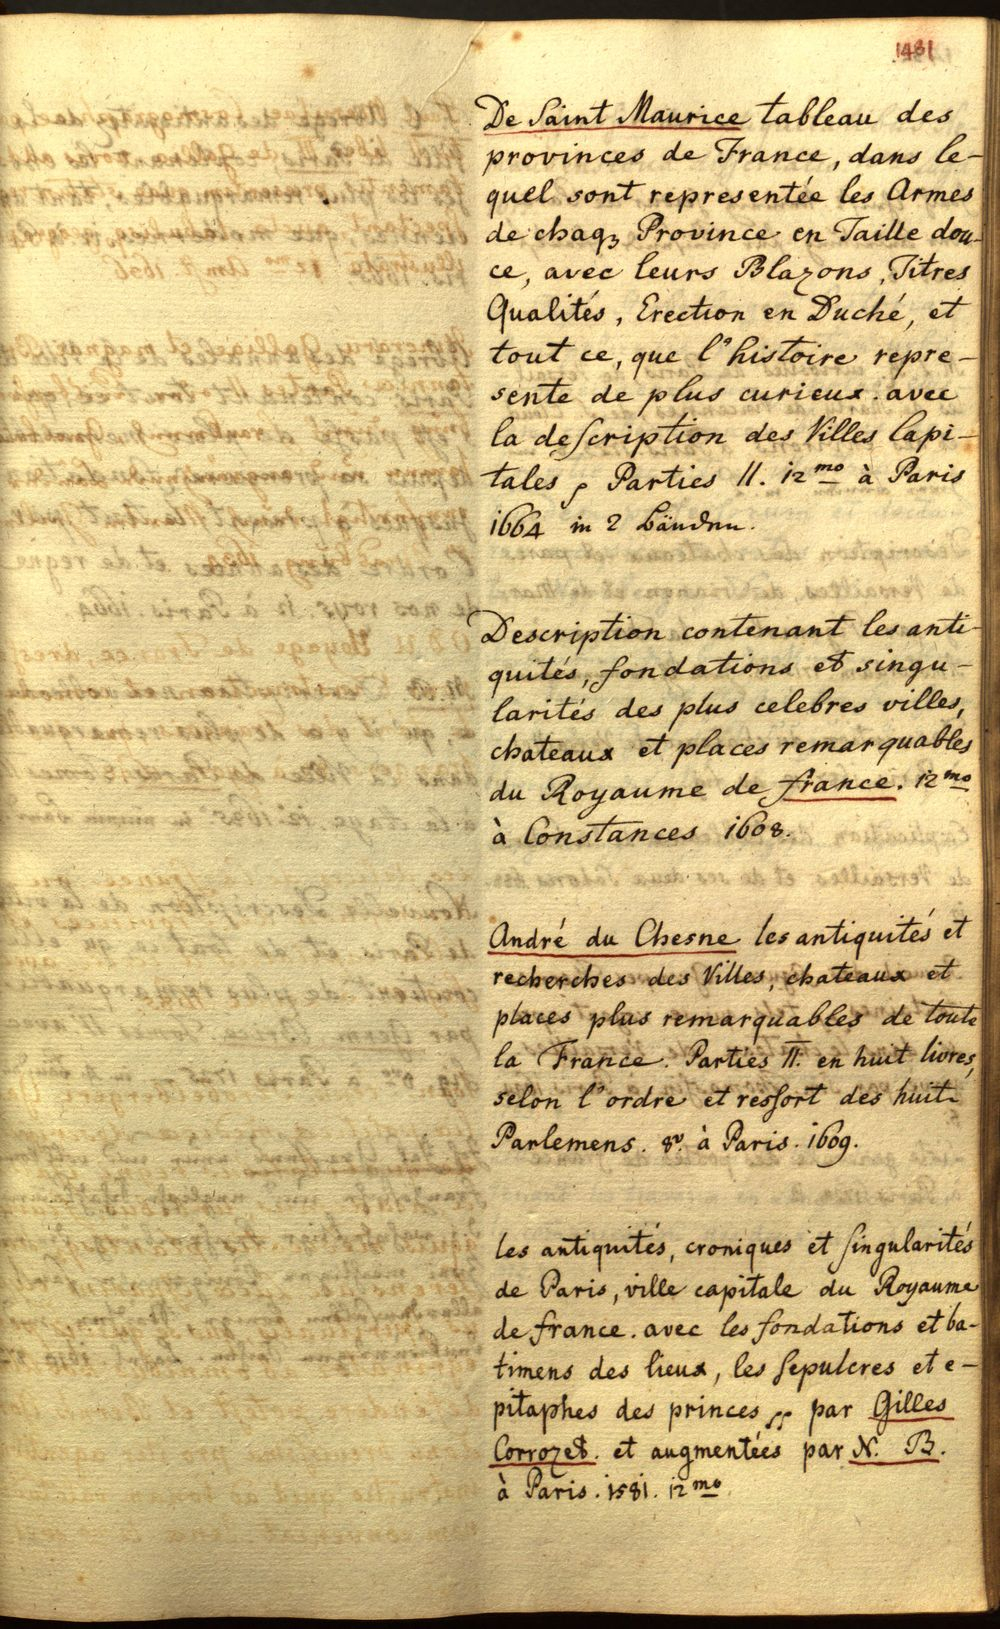 1431
De Saint Maurice tableau des
provinces de France, dans le-
quel sont representée les Armes
de chaqꝫ Province en Taille dou-
ce, avec leurs Blazons, Titres
Qualités, Erection en Duché, et
tout ce, que l'histoire repre-
sente de plus curieux. avec
la deſcription des Villes Capi-
tales Parties II. 12mo à Paris
1664 in 2 Bänden.
Description contenant les anti-
quités, fondations et singu-
larités des plus celebres villes,
chateaux et places remarquables
du Royaume de france. 12mo
à Constances 1608.
André du Chesne les antiquités et
recherches des Villes, chateaux et
places plus remarquables de toute
la France. Parties II. en huit livres,
selon l'ordre et resſort des huit
Parlemens. 8v. à Paris. 1609.
les antiquités, croniques et ſingularités
de Paris, ville capitale du Royaume
de france. avec les fondations et ba-
timens des lieux, les ſepulcres et e-
pitaphes des princes par Gilles
Corrozet. et augmentées par N. B.
à Paris. 1581. 12mo.